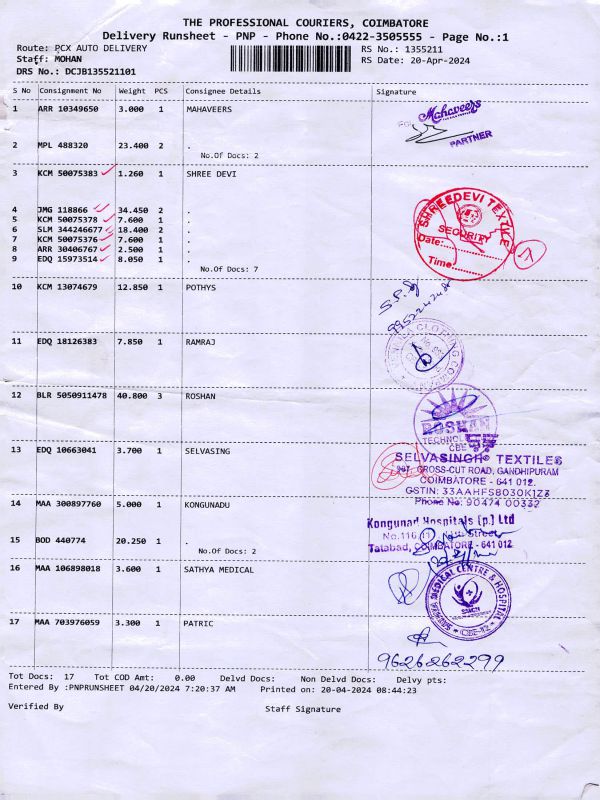 THE PROFESSIONAL COURIERS, COIMBATORE
Delivery Runsheet - PNP - Phone No.:0422-3505555 - Page No.:1
Route: PCX AUTO DELIVERY RS No.: 1355211
Staff: MOHAN RS Date: 20-Apr-2024
DRS No.: DCJB135521101
S No Consignment No Weight PCS Consignee Details Signature
1 ARR 10349650 3.000 1 MAHAVEERS
Mahaveers
PARTNER
2 MPL 488320 23.400 2 .
No.Of Docs: 2
3 KCM 50075383 1.260 1 SHREE DEVI
4 JMG 118866 34.450 2 .
5 KCM 50075378 7.600 1 .
6 SLM 344246677 18.400 2 .
7 KCM 50075376 7.600 1 .
8 ARR 30406767 2.500 1 .
9 EDQ 15973514 8.050 1 .
No.Of Docs: 7
SHREEDEVI TEXTILE
SECURITY
Date:
Time:
7
10 KCM 13074679 12.850 1 POTHYS
11 EDQ 18126383 7.850 1 RAMRAJ
12 BLR 5050911478 40.800 3 ROSHAN
ROSHAN
CBE
13 EDQ 10663041 3.700 1 SELVASING
SELVASINGH TEXTILES
987, CROSS-CUT ROAD, GANDHIPURAM
COIMBATORE - 641 012.
GSTIN: 33AAHFS8030K1Z3
Phone No: 90474 00332
14 MAA 300897760 5.000 1 KONGUNADU
Kongunad Hospitals (p.) Ltd
Street
Tatabad, COIMBATORE - 641 012
15 BOD 440774 20.250 1 .
No.Of Docs: 2
16 MAA 106898018 3.600 1 SATHYA MEDICAL
MEDICAL CENTRE & HOSPITAL
CBE-12.
17 MAA 703976059 3.300 1 PATRIC
9626262299
Tot Docs: 17 Tot COD Amt: 0.00 Delvd Docs: Non Delvd Docs: Delvy pts:
Entered By :PNPRUNSHEET 04/20/2024 7:20:37 AM Printed on: 20-04-2024 08:44:23
Verified By Staff Signature